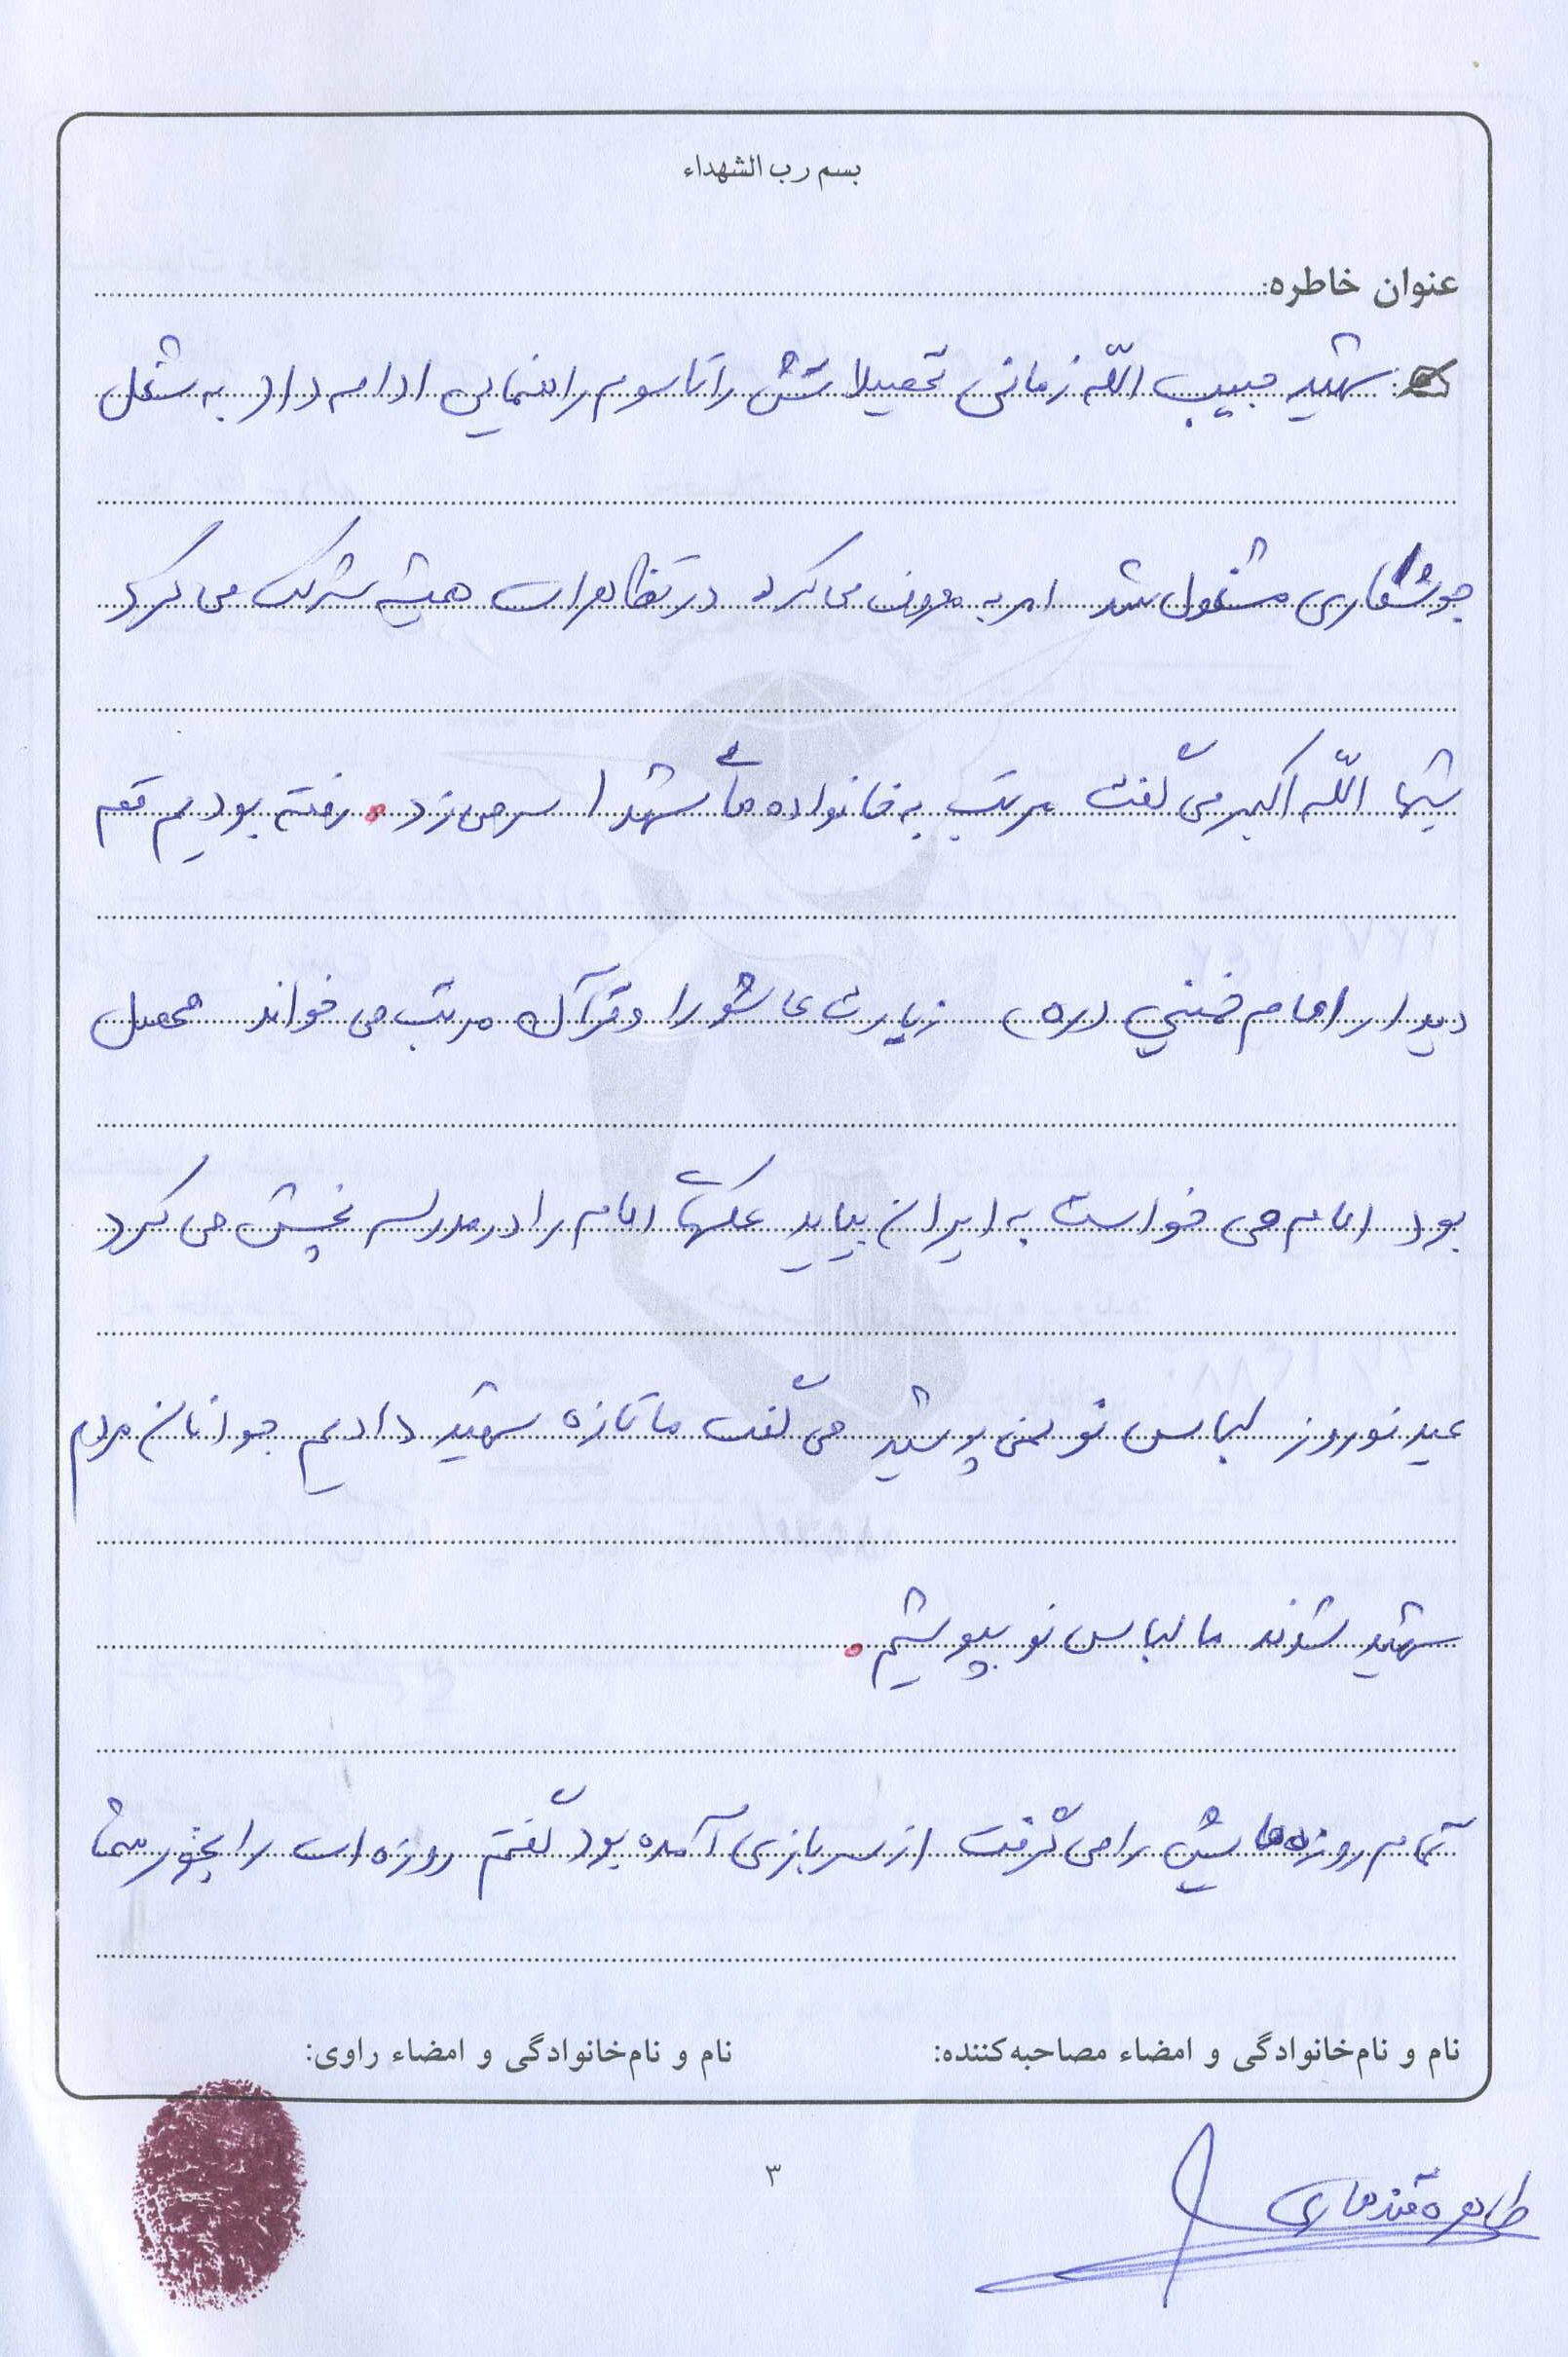 بسم رب الشهداء
عنوان خاطره:
شهید حبیب الله زمانی تحصیلاتش را تا سوم راهنمایی ادامه داد به شغل
جوشکاری مشغول شد امر به معروف می کرد در تظاهرات همیشه شرکت می کرد
شبها الله اکبر می گفت مرتب به خانواده های شهدا سر می زد. رفته بودیم قم
دیدار امام خمینی (ره) زیارت عاشورا و قرآن مرتب می خواند محصل
بود امام می خواست به ایران بیاید عکسهای امام را در مدرسه پخش می کرد
عید نوروز لباس نو نمی پوشید می گفت ما تازه شهید دادیم جوانان مردم
شهید شدند ما لباس نو بپوشیم.
تمام روزه هایش را می گرفت از سربازی آمده بود گفتم روزه ات را بخور شما
نام و نام‌خانوادگی و امضاء مصاحبه‌کننده:
نام و نام‌خانوادگی و امضاء راوی:
طاهره قندهاری
۳